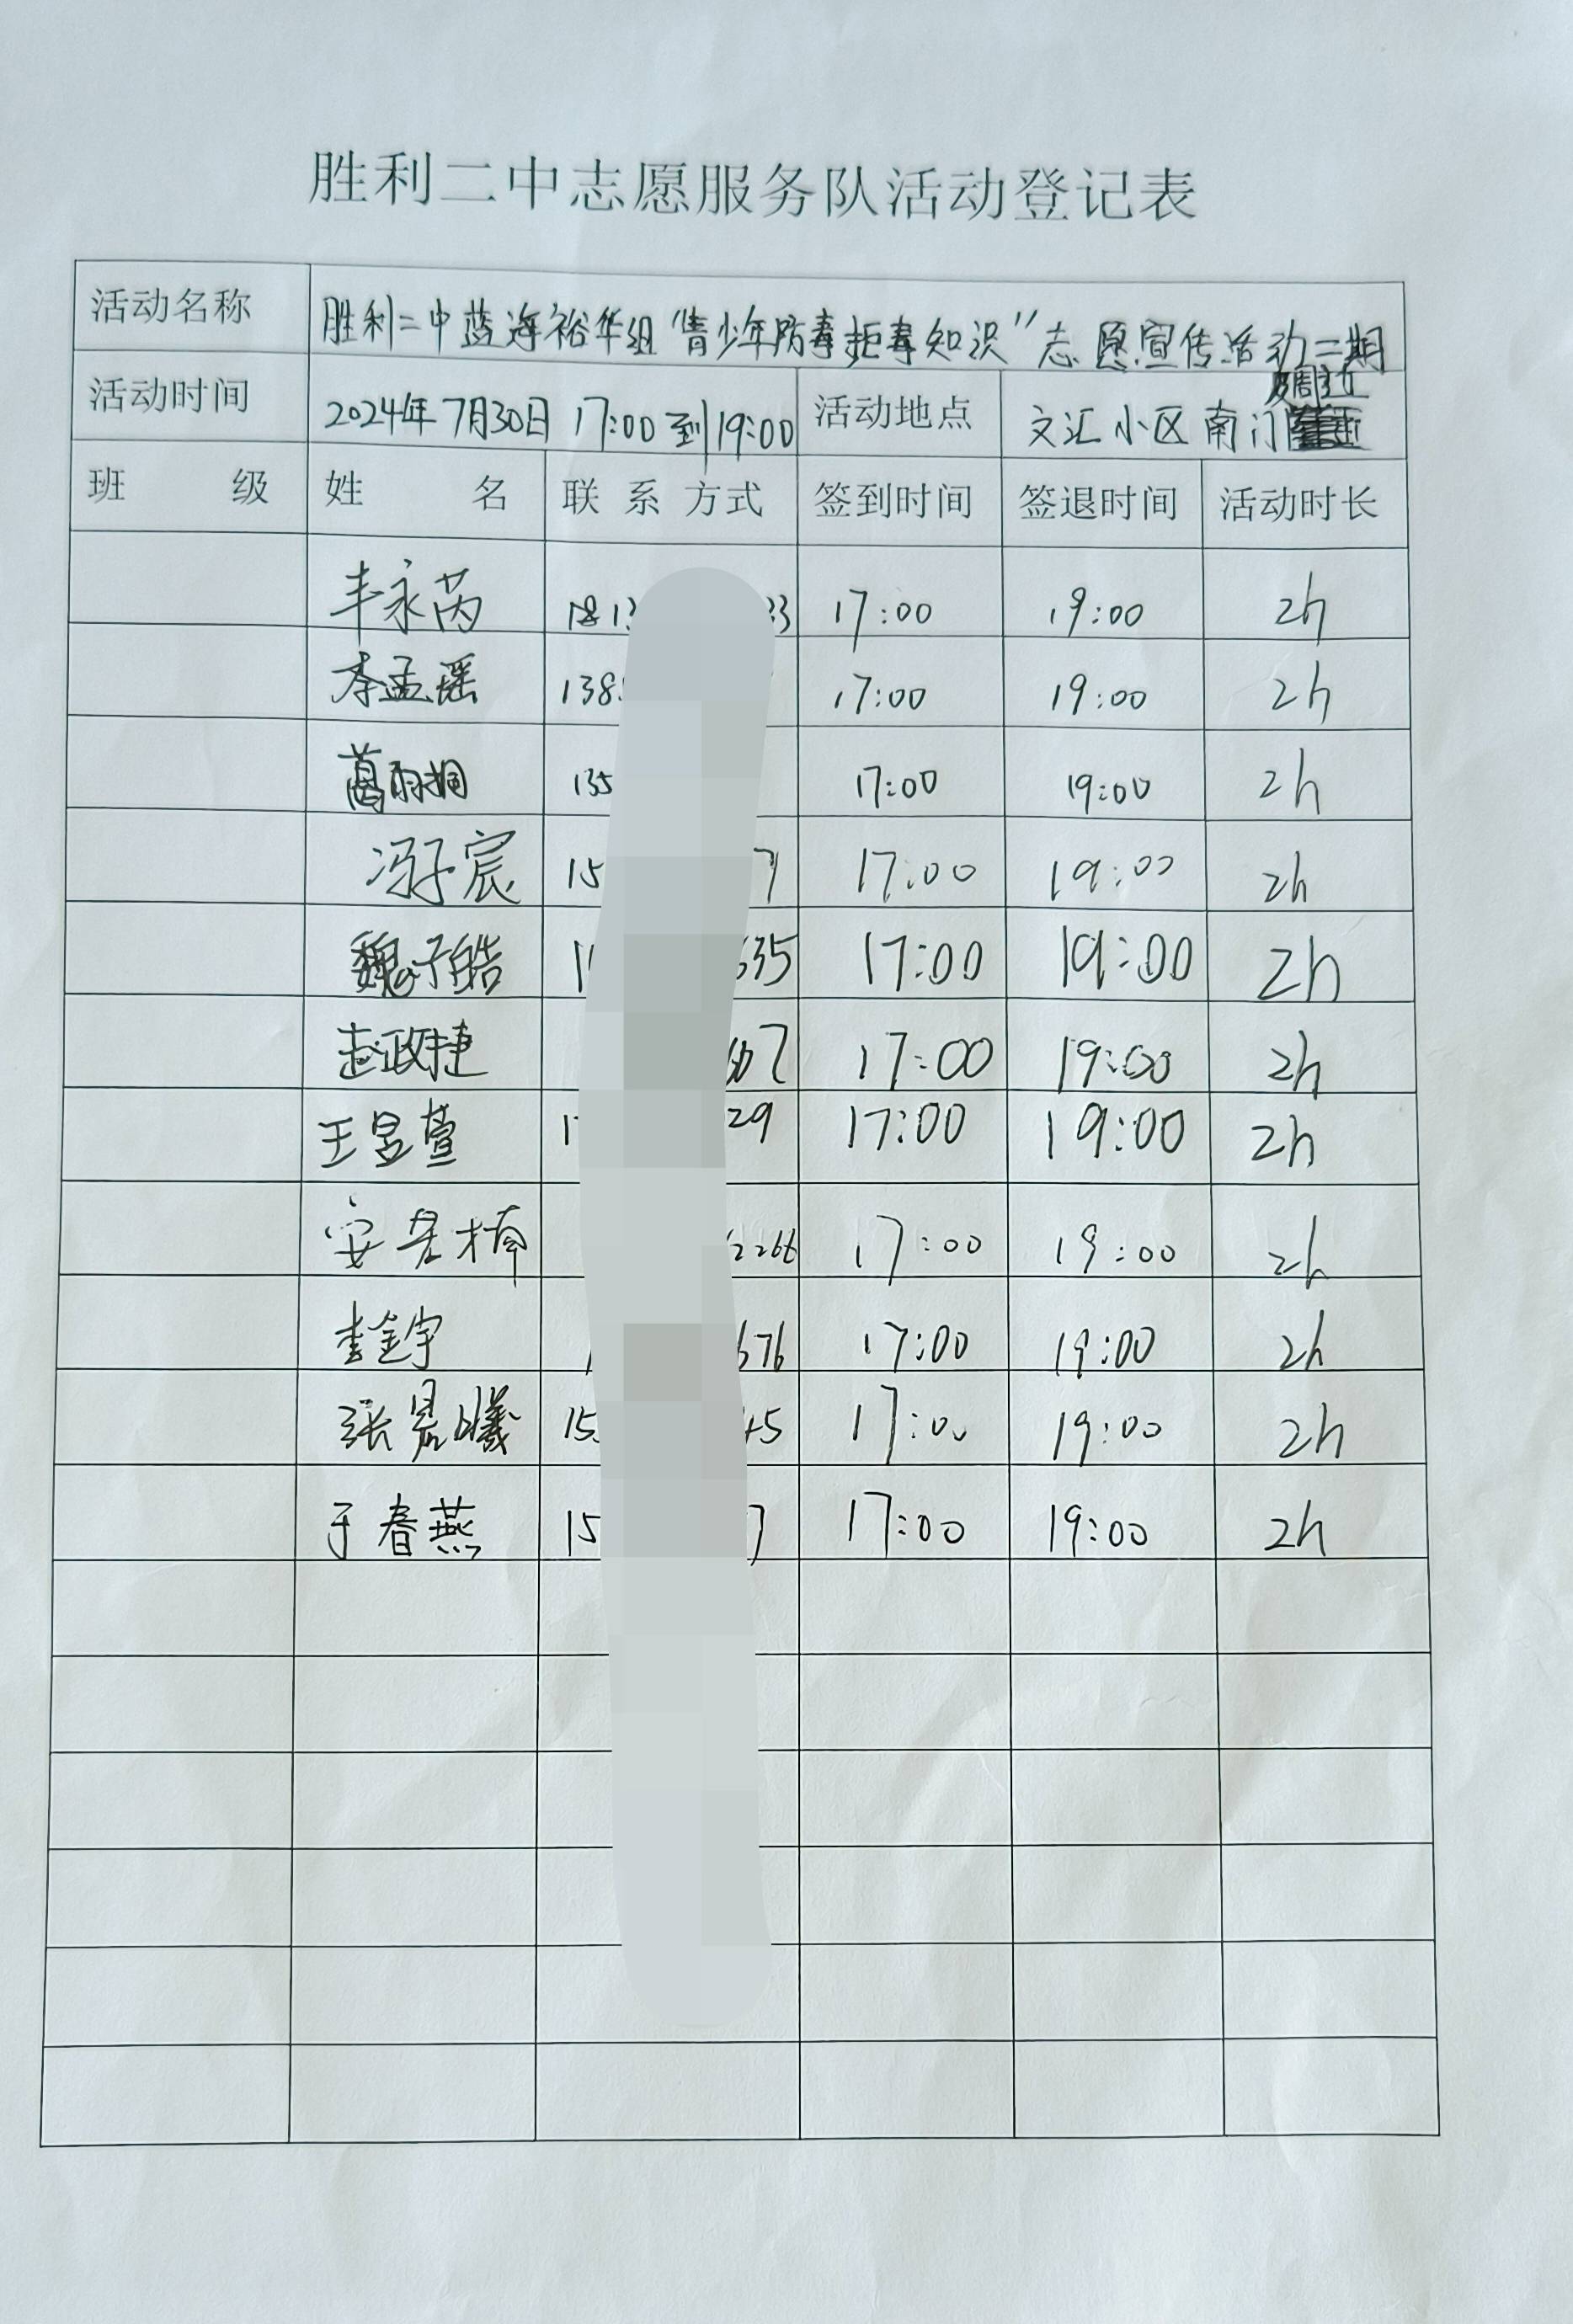 胜利二中志愿服务队活动登记表
活动名称 胜利二中蓝海裕华组“青少年防毒拒毒知识”志愿宣传活动二期
活动时间 2024年7月30日 17:00到19:00 活动地点 文汇小区南门及周边
班 级 姓 名 联系方式 签到时间 签退时间 活动时长
丰永芮 1813 33 17:00 19:00 2h
李孟瑶 138 17:00 19:00 2h
葛雨桐 135 17:00 19:00 2h
冯子宸 15 7 17:00 19:00 2h
魏子皓 1 635 17:00 19:00 2h
赵政捷 07 17:00 19:00 2h
王昱萱 1 29 17:00 19:00 2h
安 2266 17:00 19:00 2h
李金宇 676 17:00 19:00 2h
张君曦 15 45 17:00 19:00 2h
于春燕 15 7 17:00 19:00 2h